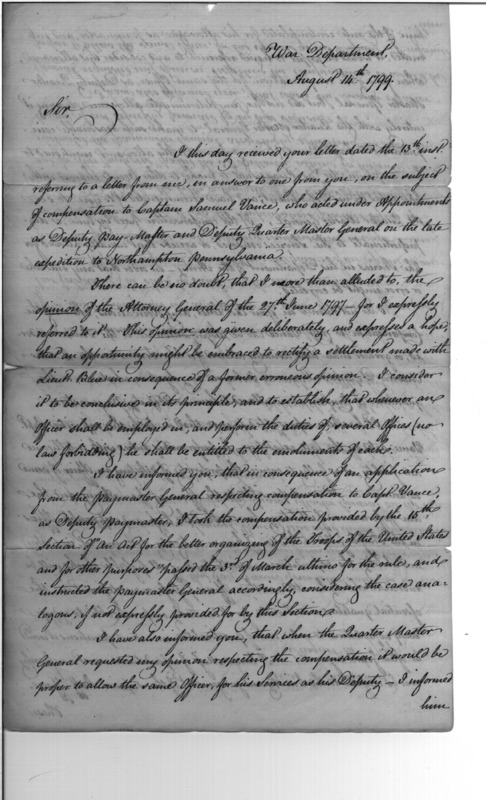 War Department,
August 14th 1799.
Sir,
I this day received your letter dated the 13th inst
referring to a letter from me, in answer to one from you, on the subject
of compensation to Captain Samuel Vance, who acted under Appointments
as Deputy pay-Master and Deputy Quarter Master General on the late
expedition to Northampton Pennsylvania.
There can be no doubt, that I more than alluded to, the
opinion of the Attorney General of the 27th June 1797 — for I expressly
referred to it. This opinion was given deliberately, and expressed a hope,
that an opportunity might be embraced to rectify a settlement made with
Lieut. Blue in consequence of a former erroneous opinion. I consider
it to be conclusive in its principle, and to establish, that whenever an
officer shall be employed in, and perform the duties of, several Offices (no
law forbidding) he shall be entitled to the emoluments of each.
I have informed you, that in consequence of an application
from the paymaster General respecting compensation to Capt. Vance,
as Deputy paymaster, I took the compensation provided by the 15th
Section of "An Act for the better organizing of the Troops of the United States
and for other purposes" passed the 3d of March ultimo for the rule, and
instructed the paymaster General accordingly, considering the case ana-
logous, if not expressly provided for by this Section.
I have also informed you, that when the Quarter Master
General requested my opinion respecting the compensation it would be
proper to allow the same Officer, for his Services as his Deputy — I informed
him